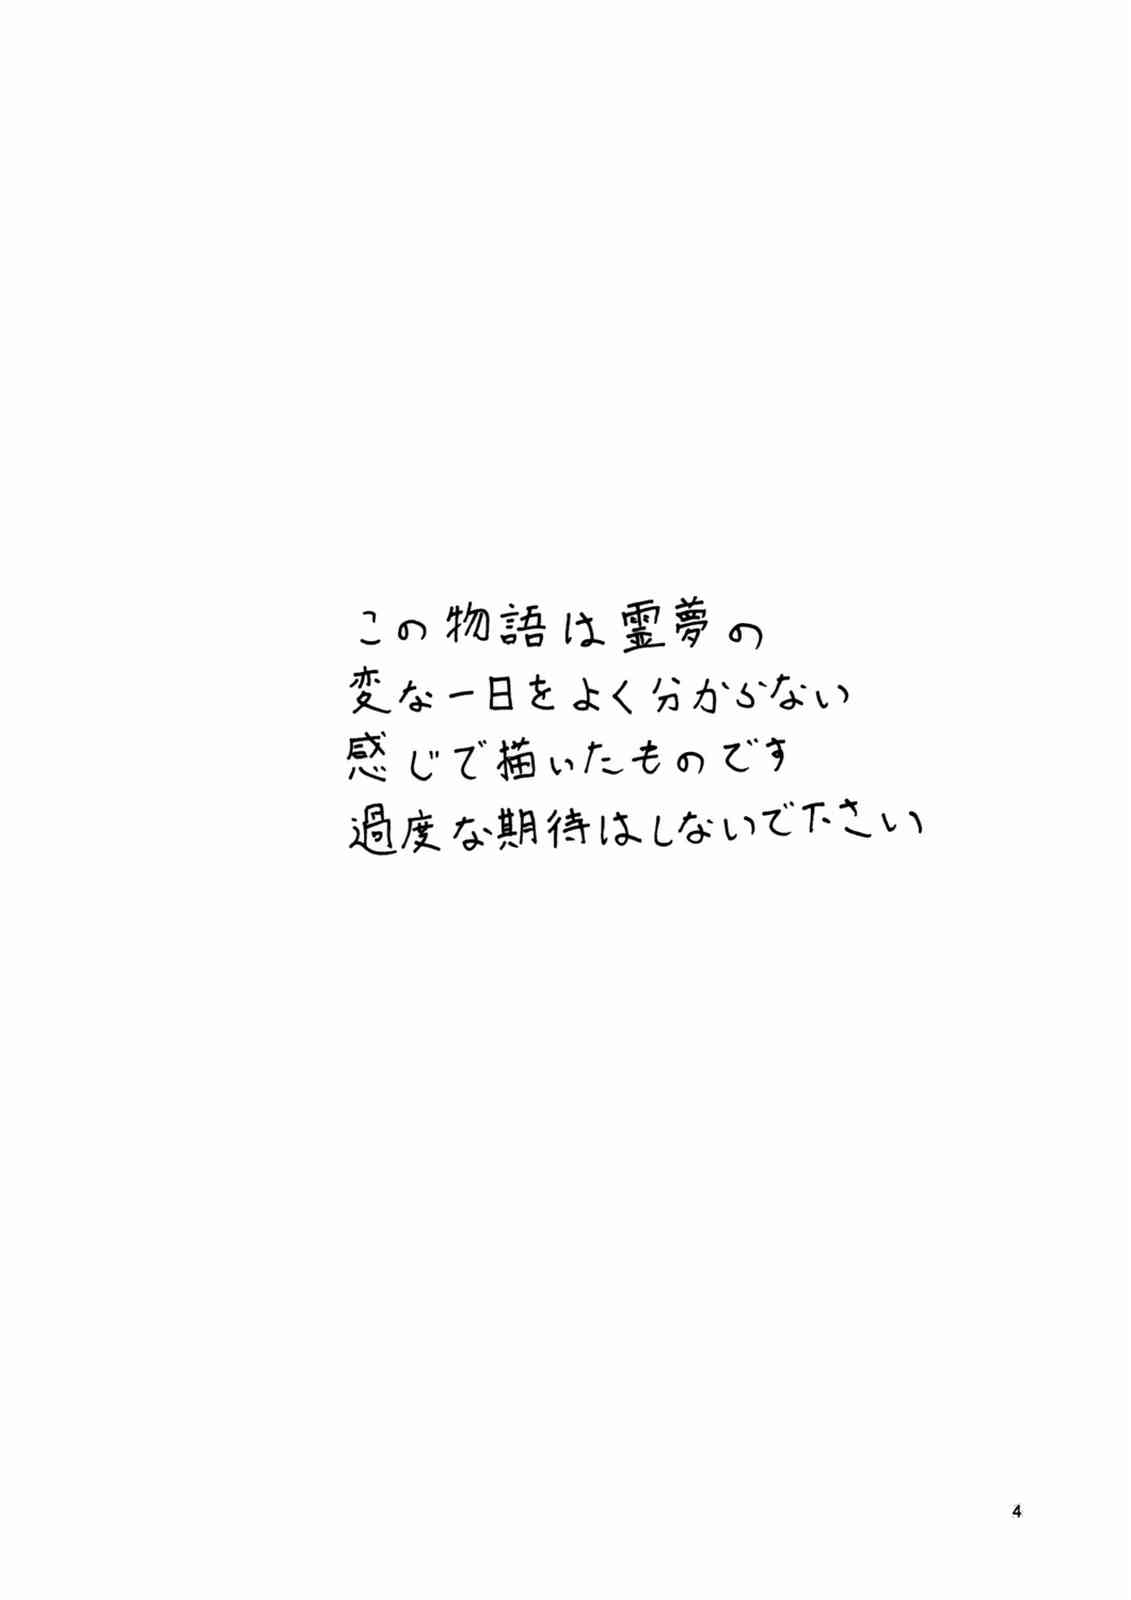 この物語は霊夢の
変な一日をよく分からない
感じで描いたものです
過度な期待はしないで下さい
4